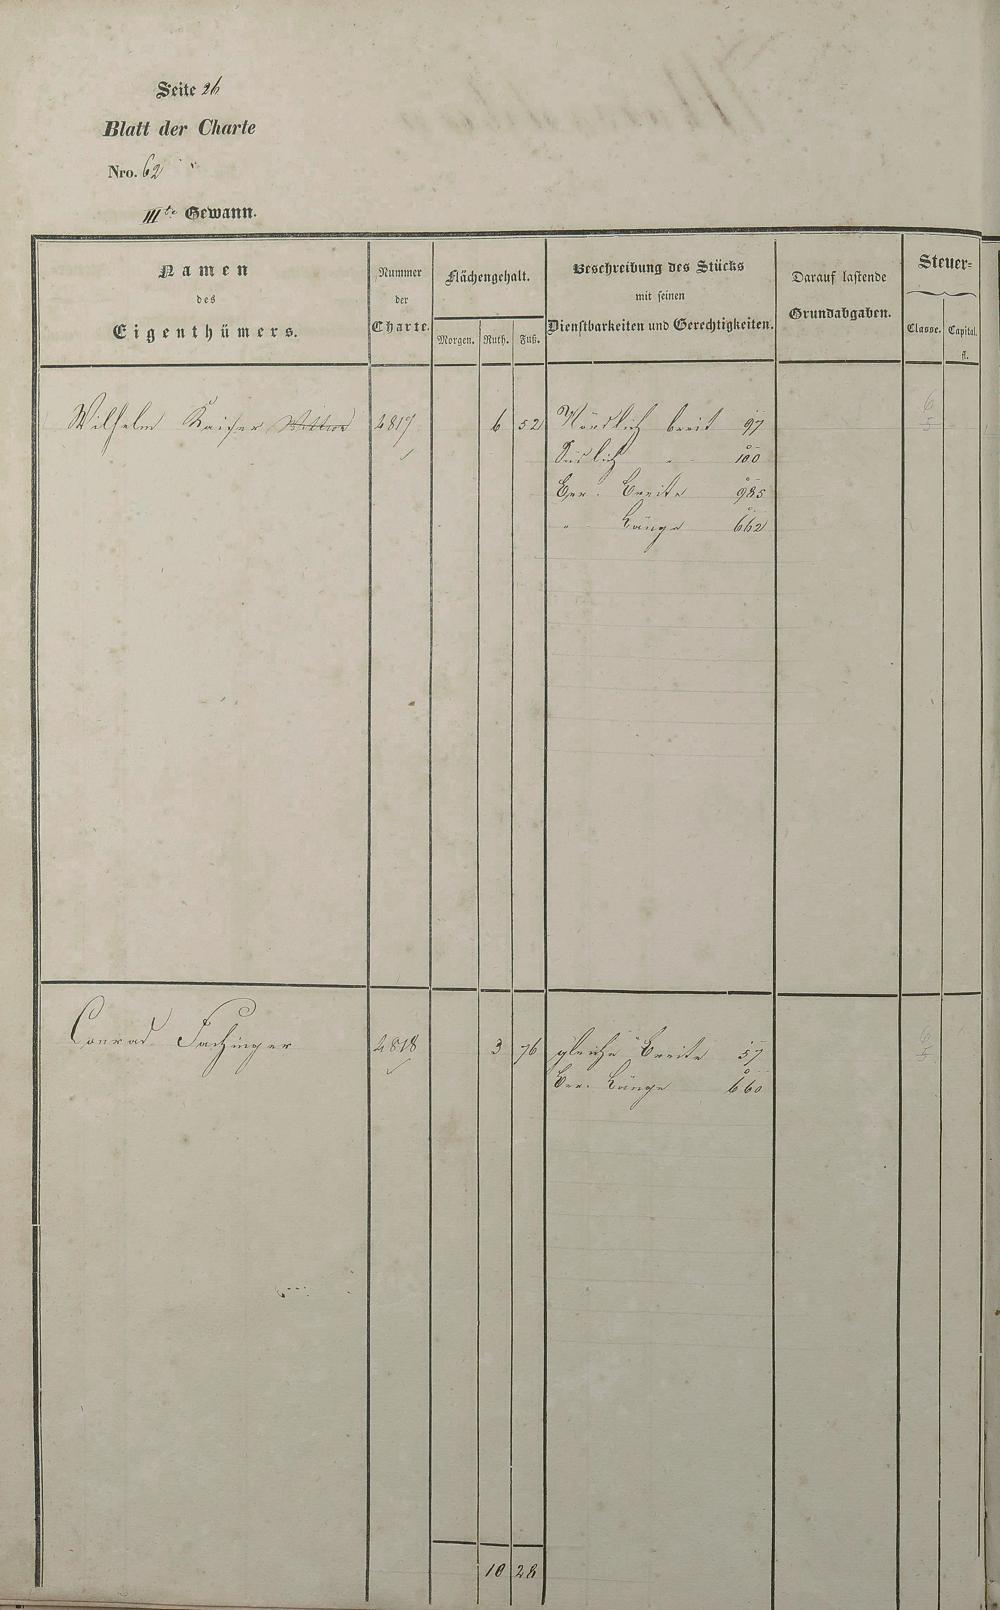 Seite 26
Blatt der Charte
Nro. 62
IIIte Gewann.
Namen des Eigenthümers.
Nummer der Charte.
Flächengehalt.
Morgen. Ruth. Fuß.
Beschreibung des Stücks mit seinen Dienstbarkeiten und Gerechtigkeiten.
Darauf lastende Grundabgaben.
Steuer-
Classe. Capital. fl.
Wilhelm Kaiser Wittwe 4817 6 52 Nördlich breit 97 6 5
Südlich " 100
Ber. Breite 985
" Länge 662
Conrad Fachinger 4818 3 76 gleiche Breite 57 6 5
Ber. Länge 660
10 28